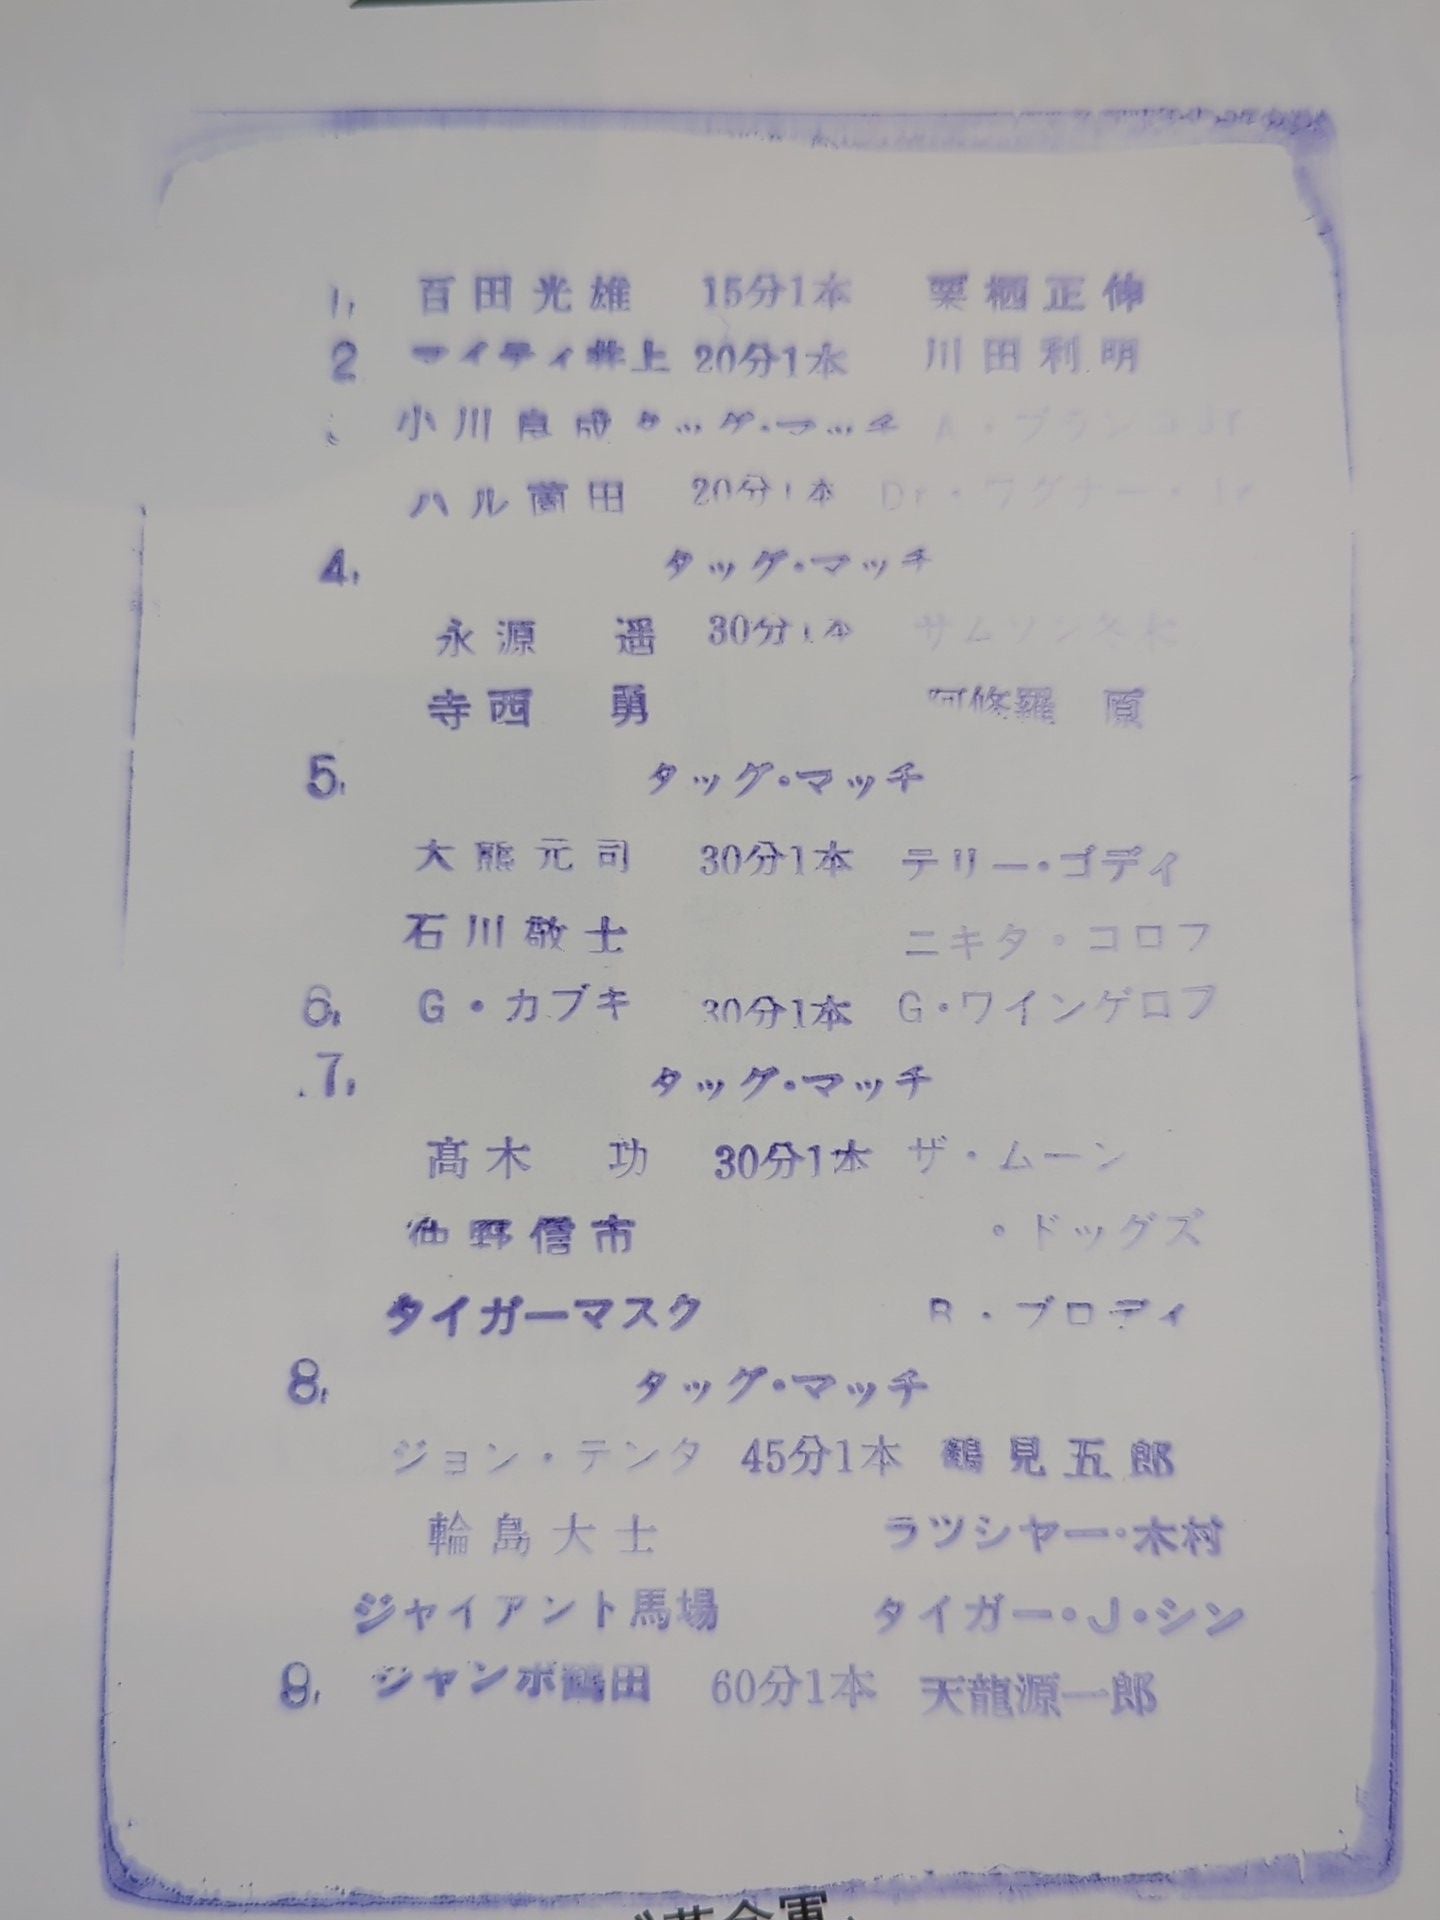 1. 百田光雄 15分1本 栗栖正伸
2 マイティ井上 20分1本 川田利明
小川良成 タッグ・マッチ A・ブランコJr
ハル薗田 20分1本 Dr・ワグナー・Jr
4. タッグ・マッチ
永源 遥 30分1本 サムソン冬木
寺西 勇 阿修羅 原
5. タッグ・マッチ
大熊元司 30分1本 テリー・ゴディ
石川敬士 ニキタ・コロフ
6. G・カブキ 30分1本 G・ワインゲロフ
7. タッグ・マッチ
高木 功 30分1本 ザ・ムーン
仲野信市 ・ドッグズ
タイガーマスク B・ブロディ
8. タッグ・マッチ
ジョン・テンタ 45分1本 鶴見五郎
輪島大士 ラツシヤー・木村
ジャイアント馬場 タイガー・J・シン
9. ジャンボ鶴田 60分1本 天龍源一郎